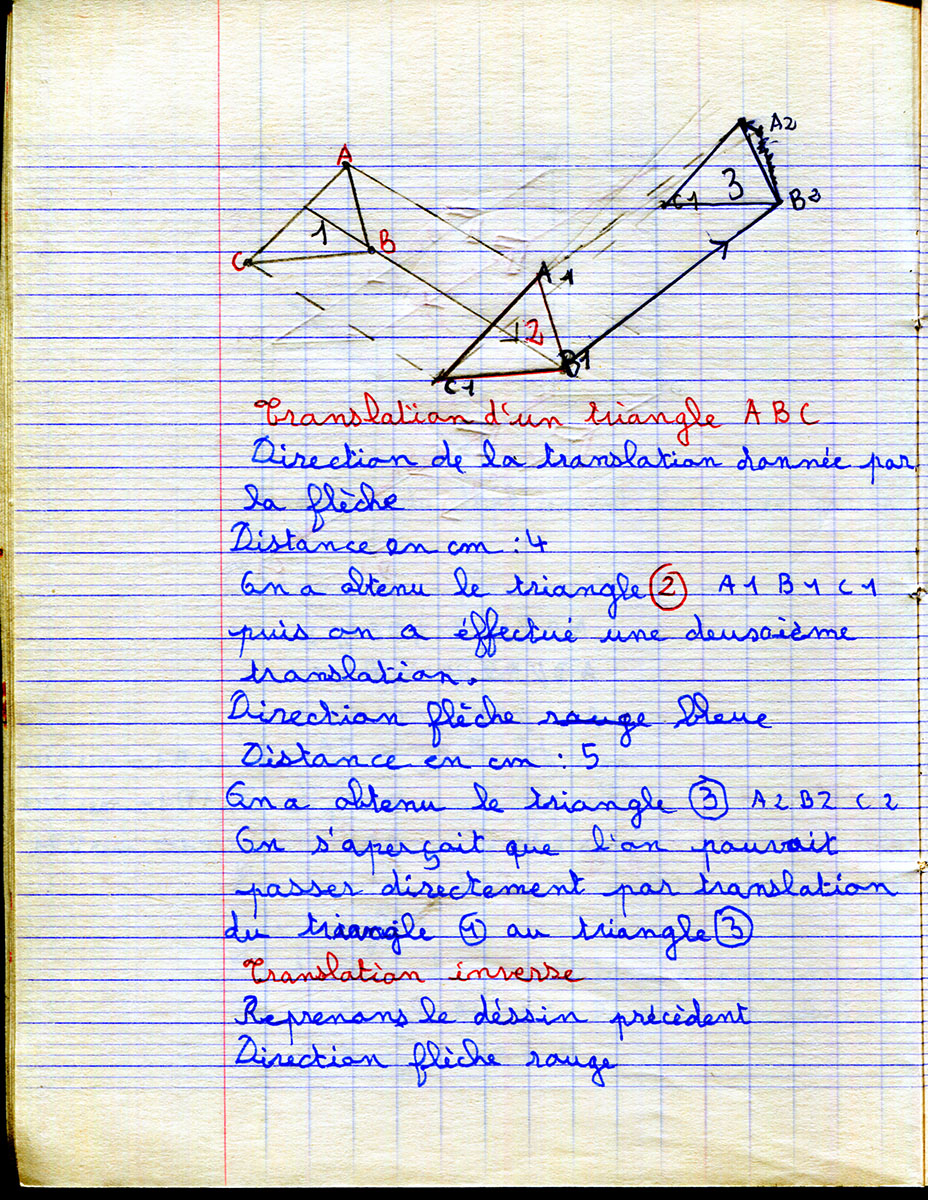 A
A2
3
C1
B2
1
B
C
A1
2
B1
C1
Translation d'un triangle A B C
Direction de la translation donnée par
la flèche
Distance en cm : 4
On a obtenu le triangle 2 A1 B1 C1
puis on a éffectué une deuxoième
translation.
Direction flèche rouge bleue
Distance en cm : 5
On a obtenu le triangle 3 A2 B2 C2
On s'aperçoit que l'on pouvait
passer directement par translation
du triangle 1 au triangle 3
Translation inverse
Reprenons le déssin précèdent
Direction flèche rouge